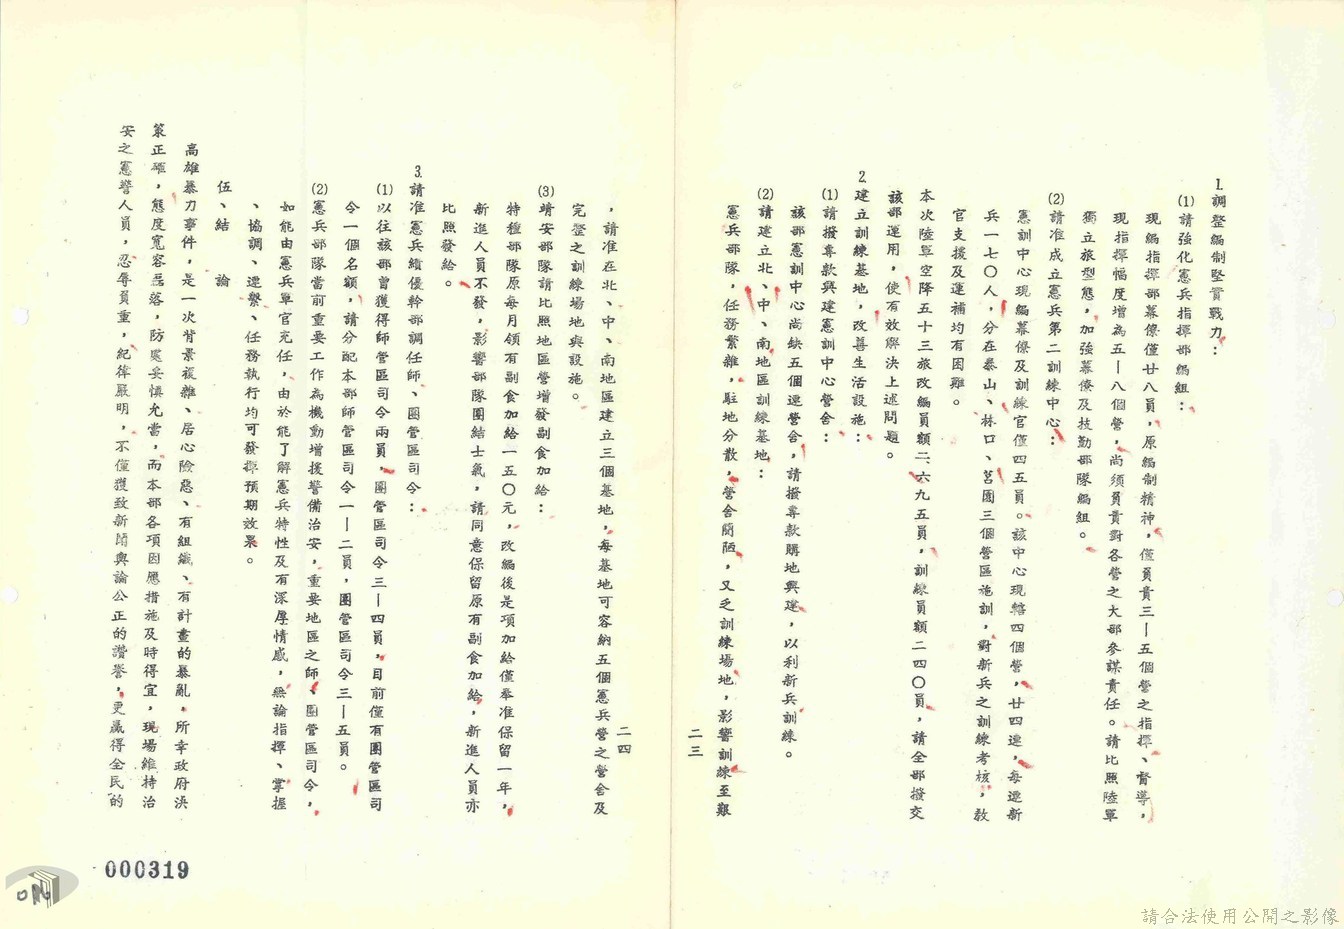 1.調整編制堅實戰力：
(1)請強化憲兵指揮部編組：
現編指揮部幕僚僅廿八員，原編制精神，僅員責三－五個營之指揮、督導，
現指揮幅度增為五－八個營，尚須負責對各營之大部參謀責任。請比照陸軍
獨立旅型態，加強幕僚及技勤部隊編組。
(2)請准成立憲兵第二訓練中心：
憲訓中心現編幕僚及訓練官僅四五員。該中心現轄四個營，廿四連，每連新
兵一七〇人，分在泰山、林口、莒園三個營區施訓，對新兵之訓練考核，教
官支援及運補均有困難。
本次陸軍空降五十三旅改編員額二、六九五員，訓練員額二四〇員，請全部撥交
該部運用，使有效解決上述問題。
2.建立訓練基地，改善生活設施：
(1)請撥專款興建憲訓中心營舍：
該部憲訓中心尚缺五個連營舍，請撥專款購地興建，以利新兵訓練。
(2)請建立北、中、南地區訓練基地：
憲兵部隊，任務繁雜，駐地分散，營舍簡陋，又乏訓練場地，影響訓練至艱
二三
，請准在北、中、南地區建立三個基地，每基地可容納五個憲兵營之營舍及
完整之訓練場地與設施。
(3)靖安部隊請比照地區營增發副食加給：
特種部隊原每月領有副食加給一五〇元，改編後是項加給僅奉准保留一年，
新進人員不發，影響部隊團結士氣，請同意保留原有副食加給，新進人員亦
比照發給。
3.請准憲兵績優幹部調任師、團管區司令：
(1)以往該部曾獲得師管區司令兩員，團管區司令三－四員，目前僅有團管區司
令一個名額，請分配本部師管區司令一－二員，團管區司令三－五員。
(2)憲兵部隊當前重要工作為機動增援警備治安，重要地區之師、團管區司令，
如能由憲兵軍官充任，由於能了解憲兵特性及有深厚情感，無論指揮、掌握
、協調、連繫、任務執行均可發揮預期效果。
伍、結　論
高雄暴力事件，是一次背景複雜、居心險惡、有組織、有計畫的暴亂，所幸政府決
策正確，態度寬容磊落，防處妥慎允當，而本部各項因應措施及時得宜，現場維持治
安之憲警人員，忍辱負重，紀律嚴明，不僅獲致新聞與論公正的讚譽，更贏得全民的
二四
000319
請合法使用公開之影像